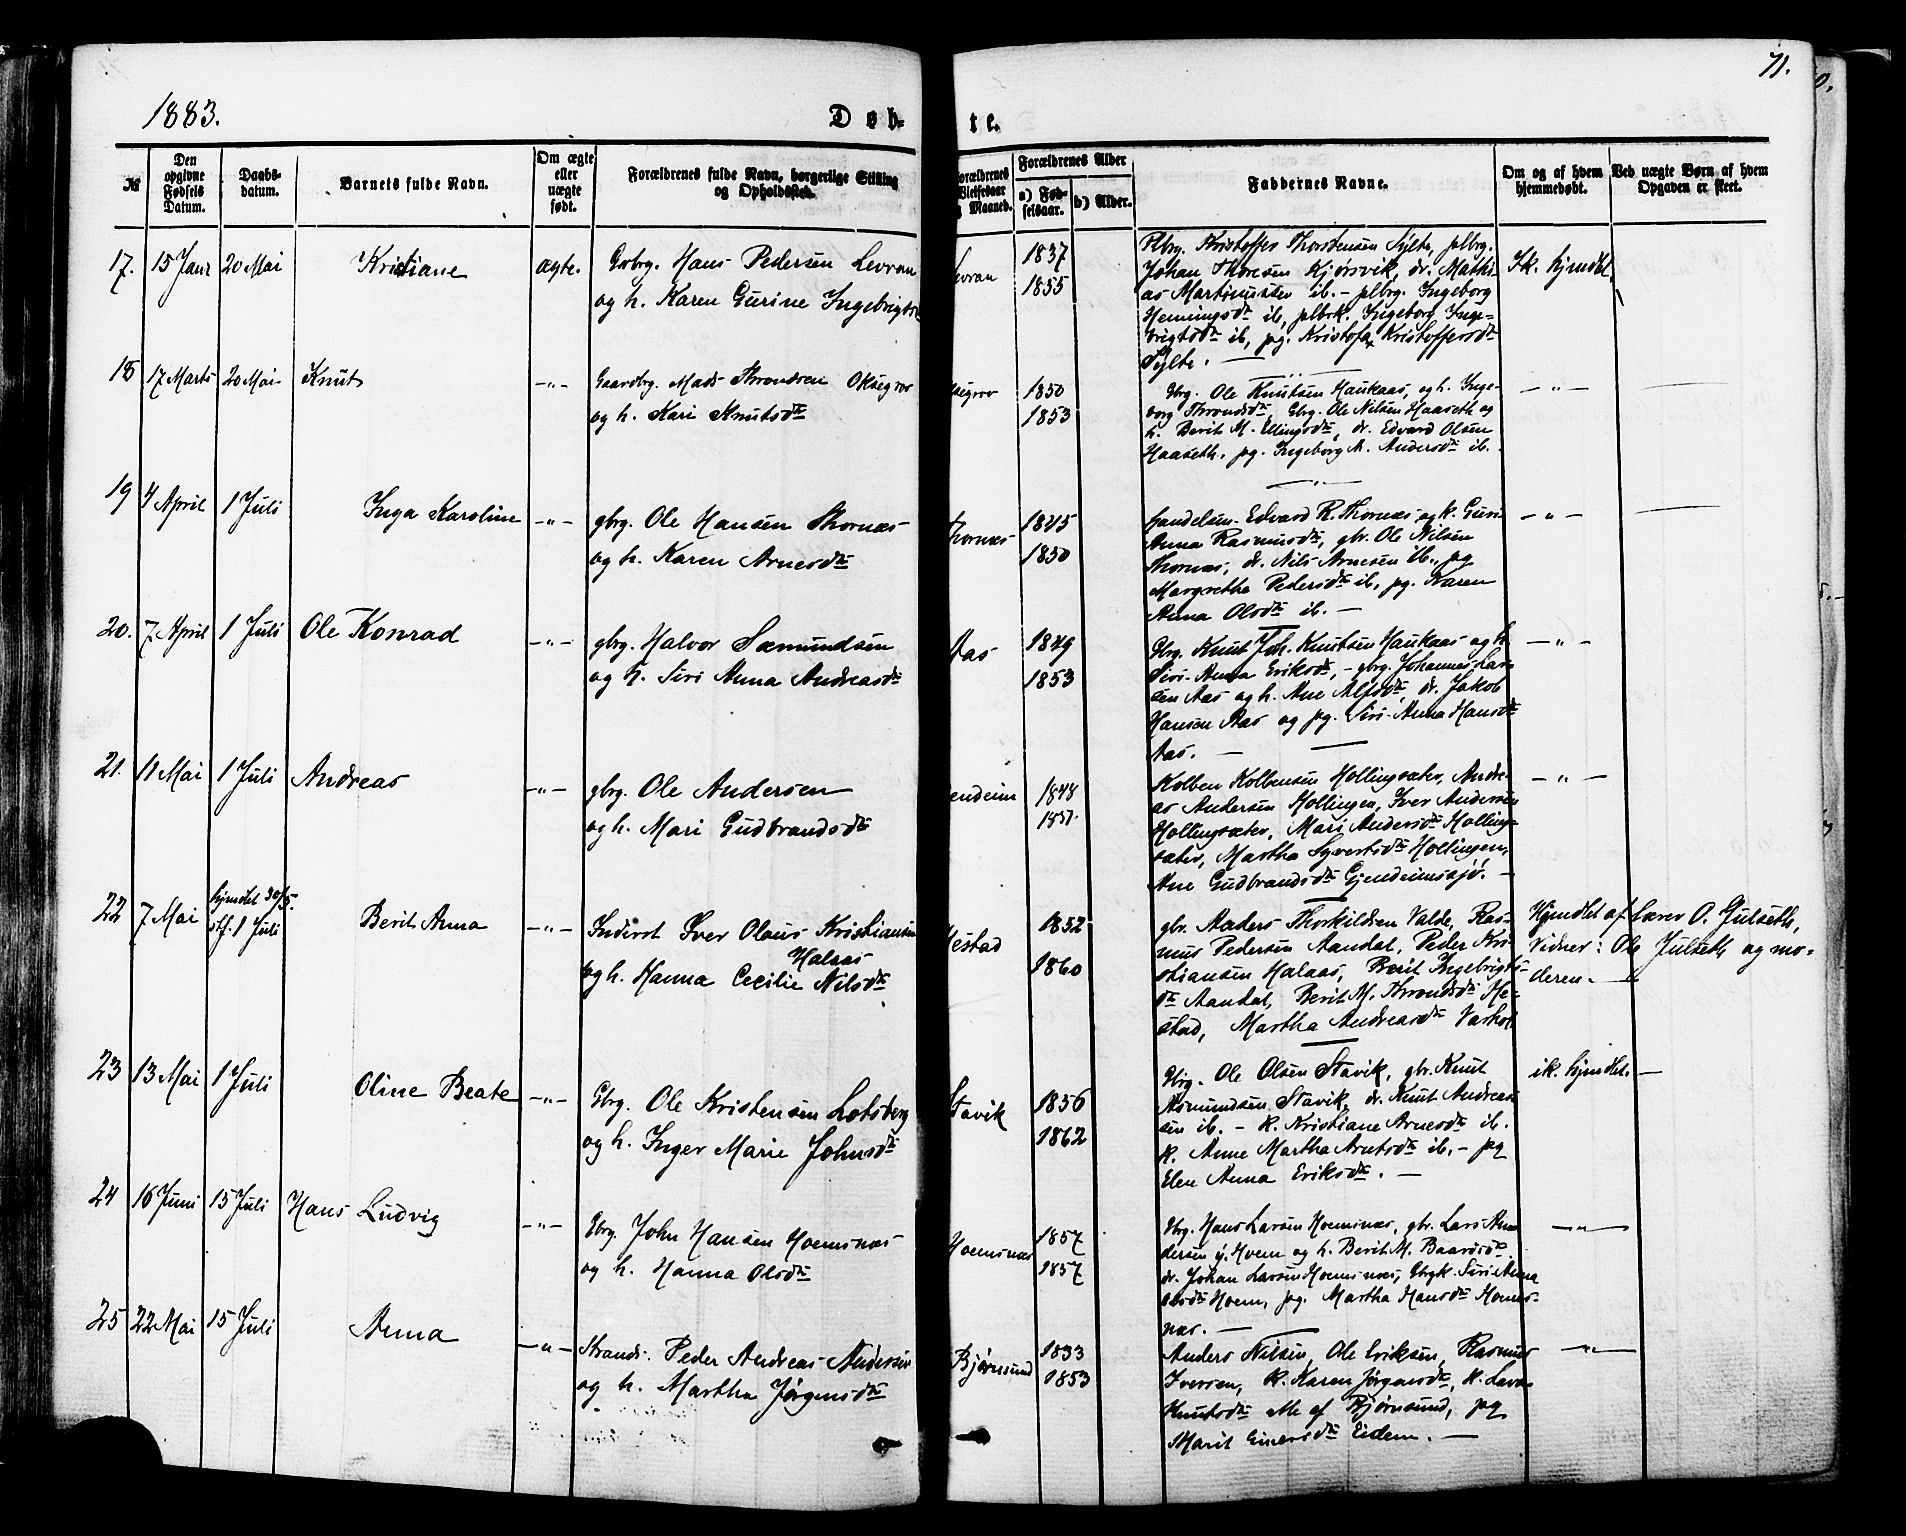 71.
1883.
Døb-
te.
№
Den opgivne Fødsels Datum.
Daabs-datum.
Barnets fulde Navn.
Om ægte eller uægte født.
Forældrenes fulde Navn, borgerlige Stilling og Opholdssted.
Forældrenes Vielsesaar og Maaned.
Forældrenes Alder
a) Fød-selsaar.
b) Alder.
Faddernes Navne.
Om og af hvem hjemmedøbt.
Ved uægte Børn af hvem Opgaven er skeet.
17. 15 Janr 20 Mai Kristiane ægte.
Grbrg. Hans Pedersen Levran
og h. Karen Gurine Ingebrigtsd
Levran
1837
1855
Plbrg. Kristoffer Thorstensen Sylte, plbrg.
Johan Thoresen Kjørsvik, dr. Mathi-
as Martinussen ib. - plbrg. Ingeborg
Henningsdtr ib, plbrk. Ingeborg Inge-
brigtsdtr ib, pg. Kristofa Kristoffersdtr
Sylte. —
Ik. hjmdbt.
18 17 Marts 20 Mai Knut —"—
Gaardbrg. Mads Throndsen Oksegrov
og h. Kari Knutsdtr
segrov
1850
1853
Gbrg. Ole Knutsen Haukaas, og h. Inge-
borg Throndsdtr, Gbrg. Ole Nilsen Haaseth og
h. Berit M. Ellingsdtr, dr. Edvard Olsen
Haaseth, pg. Ingeborg M. Andersdtr ib.
—"—
19 4 April 1 Juli Inga Karoline —"—
gbrg. Ole Hansen Thornæs
og h. Karen Arnesdtr
Thornæs
1845
1850
Handelsm. Edvard R. Thornæs og k. Guri-
Anna Rasmusdtr, gbr. Ole Nilsen
Thornæs, dr. Nils Arnesen ib., pg
Margretha Pedersdtr ib, pg. Karen
Anna Olsdtr ib. —
—"—
20. 7 April 1 Juli Ole Konrad —"—
gbrg. Halvor Sæmundsen
og h. Siri Anna Andreasdtr
Aas
1849
1853
Gbrg. Knut Joh. Knutsen Haukaas og h.
Siri-Anna Eriksdtr, - gbrg. Johannes Lar-
sen Aas og h. Ane Alfsdtr, dr. Jakob
Hansen Aas og pg. Siri-Anna Hansdtr
Aas. —
—"—
21. 11 Mai 1 Juli Andreas —"—
gbrg. Ole Andersen
og h. Mari Gudbrandsdtr
endeim
1848
1857.
Kolben Kolbensen Hollingsæter, Andre-
as Andersen Hollingen, Iver Andersen
Hollingsæter, Mari Andersdtr Holling-
sæter, Martha Syvertsdtr Hollingen,
Ane Gudbrandsdtr Gjendeimsjø. —
—"—
22 7 Mai hjmdbt 30/5. stf. 1 Juli Berit Anna —"—
Inderst Iver Olaus Kristiansen
Halaas
og h. Hanna Cecilie Nilsdtr
Mestad
1852
1860
gbr. Anders Thorkildsen Valde, Ras-
mus Pedersen Aandal, Peder Kri-
stiansen Halaas, Berit Ingebrigts-
dtr Aandal, Berit M. Throndsdtr Me-
stad, Martha Andreasdtr Varhol
Hjmdbt af Lærer O. Julseth,
Vidner: Ole Julseth og mo-
deren. —
23 13 Mai 1 Juli Oline Beate —"—
Gbrg. Ole Kristensen Lotsberg
og h. Inger Marie Johnsdtr
Stavik
1856
1862
Gbrg. Ole Olsen Stavik, gbr. Knut
Asmundsen Stavik, dr. Knut Andreas-
sen ib. - k. Kristiane Arnesdtr ib.
k. Anne Martha Arntsdtr ib. - pg
Elen Anna Eriksdtr. —
ik. hjmdbt. —
24 16 Juni 15 Juli Hans Ludvig —"—
Gbrg. John Hansen Hoemsnæs
og h. Hanna Olsdtr
Hoemsnæs
1857
1857
Gbrg. Hans Larsen Hoemsnæs, gbr. Lars An-
dersen y. Hoem og h. Berit M. Baardsdtr
dr. Johan Larsen Hoemsnæs, Gbrgk. Siri Anna
Olsdtr Hoem, pg. Martha Hansdtr Hoems-
næs. —
—"—
25 22 Mai 15 Juli Anna —"—
Strands. Peder Andreas Andersen
og h. Martha Jørgensdtr
Bjørnsund
1833
1853
Anders Nilsen, Ole Eriksen, Rasmus
Iversen, k. Karen Jørgensdtr, k. Lava
Knutsdtr alle af Bjørnsund, pg
Marit Einersdtr Eidem. —
—"—